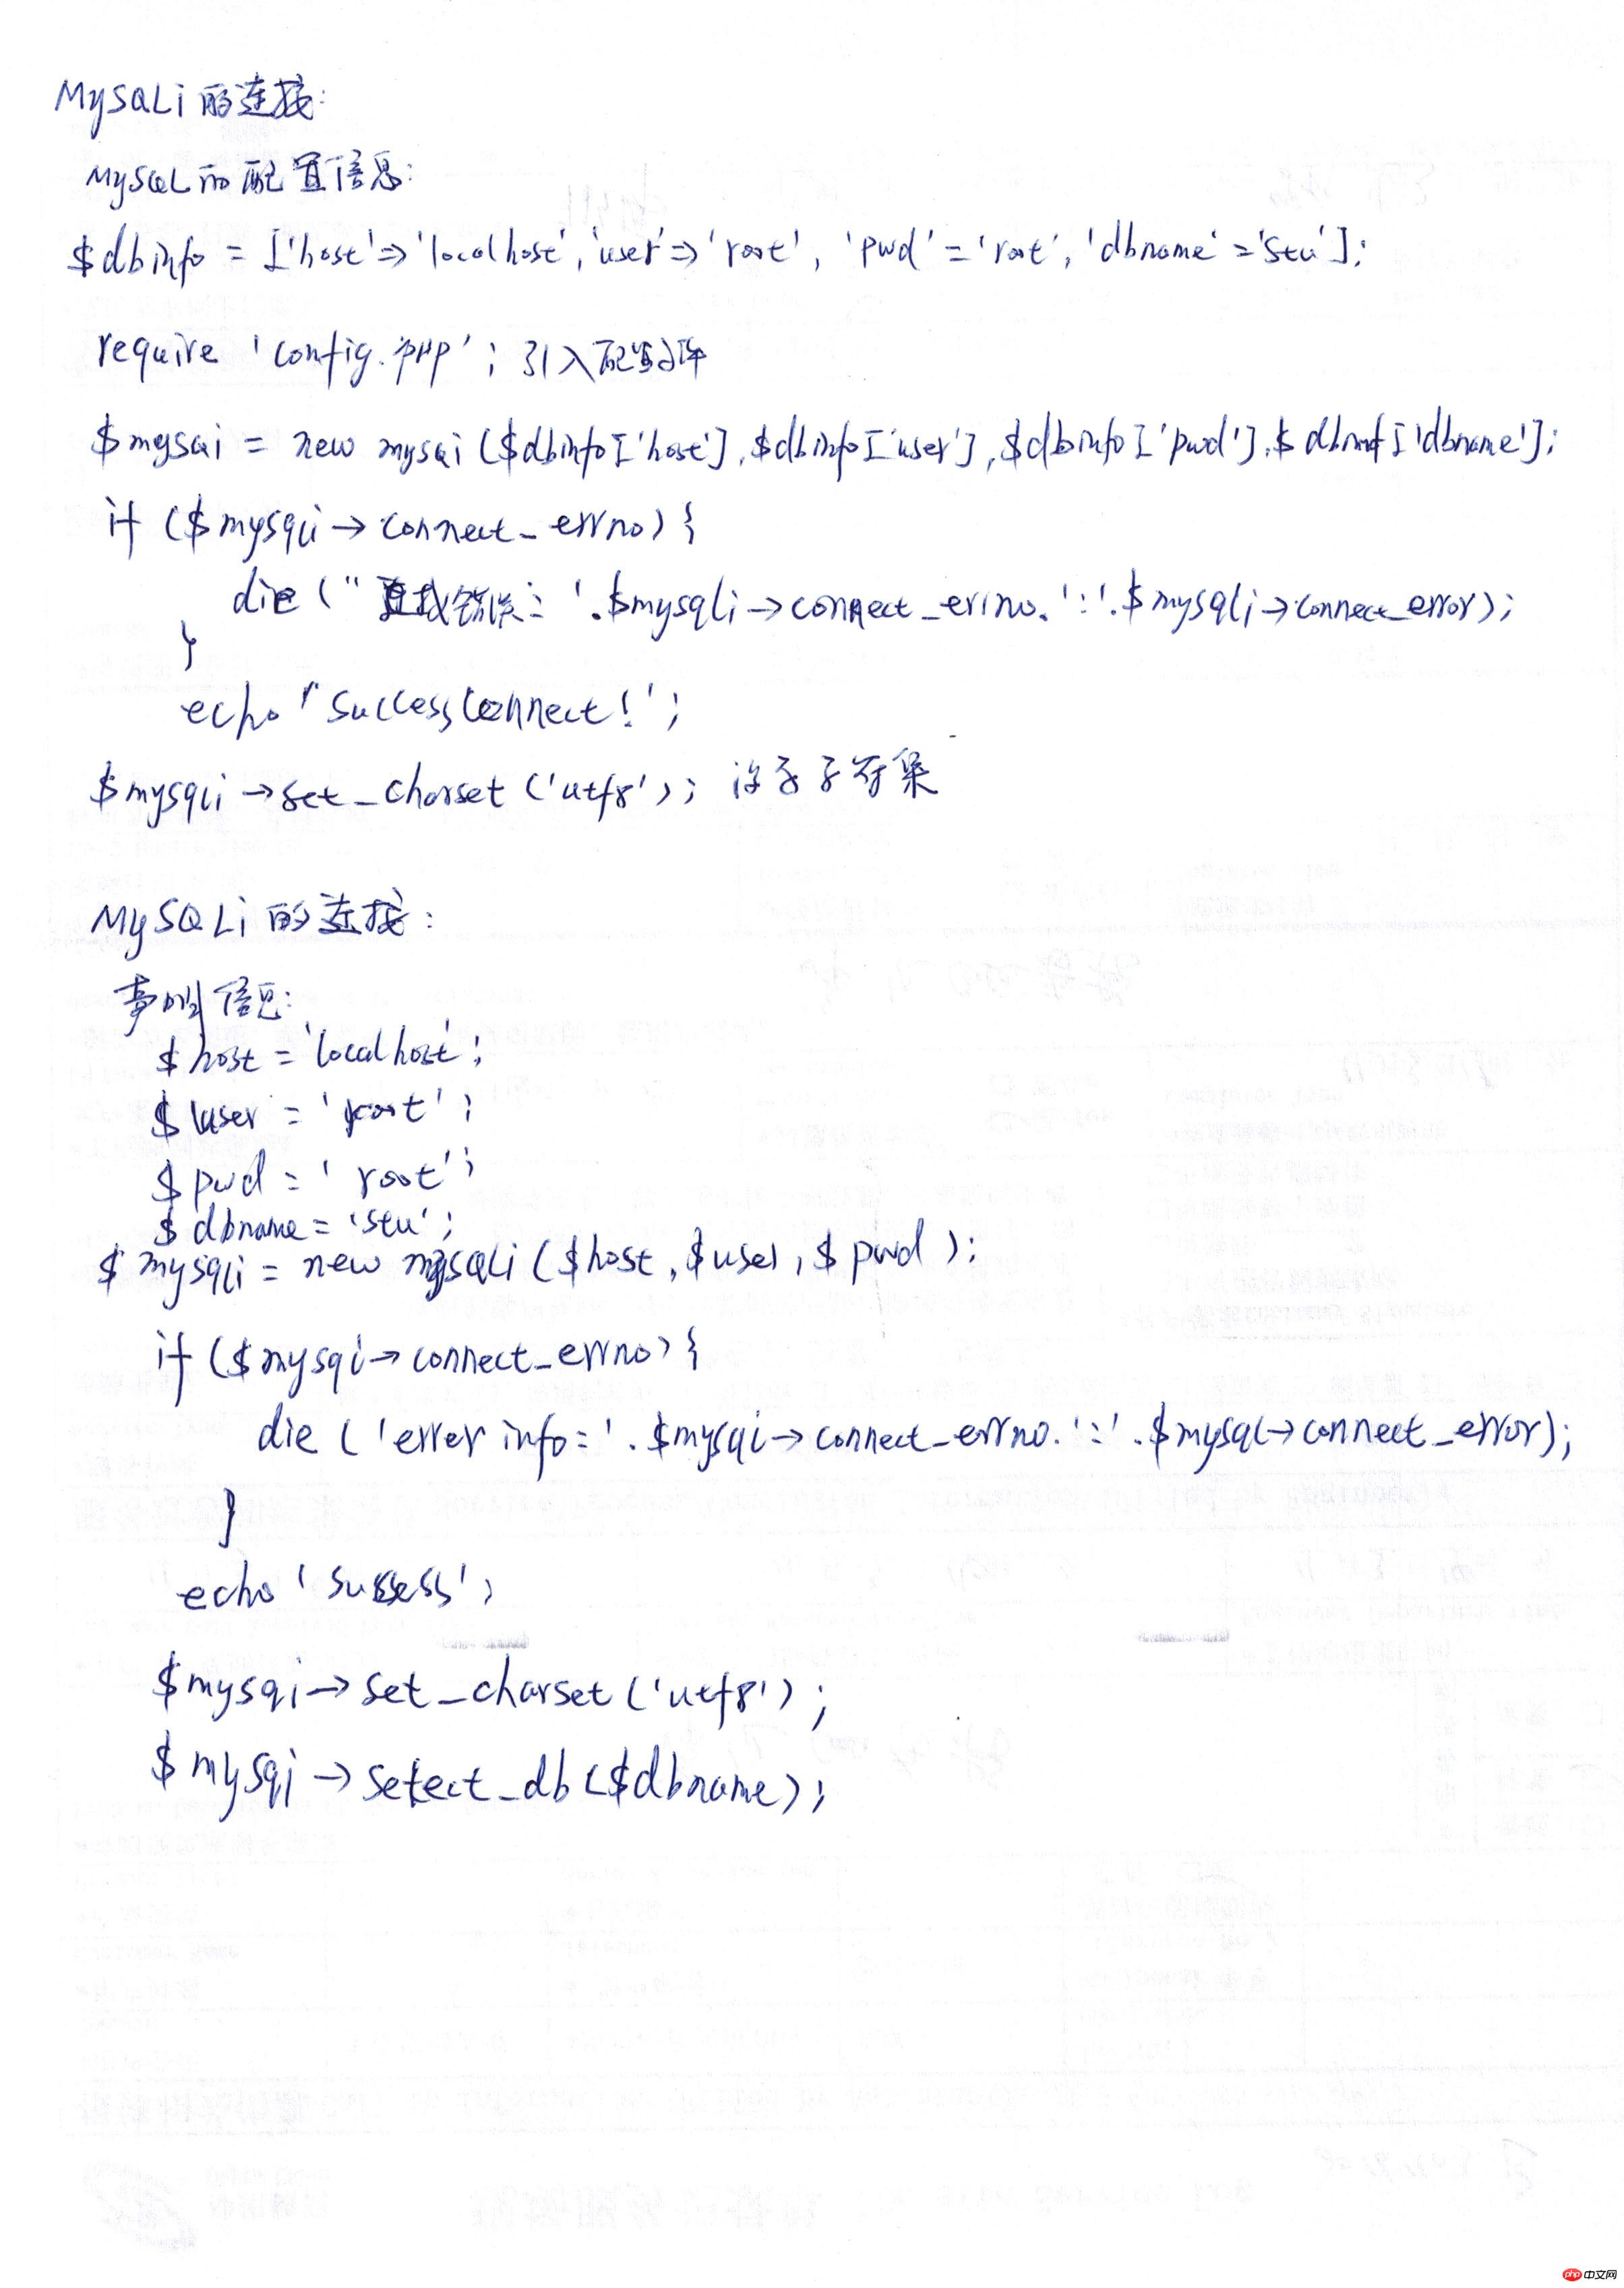 MySQLi的连接:
MySQL的配置信息:
$dbinfo = ['host'=>'localhost','user'=>'root', 'pwd'='root','dbname'='stu'];
require 'config.php'; 引入配置文件
$mysqi = new mysqi ($dbinfo['host'],$dbinfo['user'],$dbinfo['pwd'],$dbinf['dbname'];
if ($mysqli->connect_errno){
die (" 错误: '.$mysqli->connect_errno.':'.$mysqli->connect_error);
}
echo 'success connect!';
$mysqli->set_charset('utf8'); 设字符集
MySQLi的连接:
信息:
$host = 'localhost';
$user = 'root';
$pwd = 'root';
$dbname = 'stu';
$mysqli = new mysqli($host,$user,$pwd);
if ($mysqi->connect_errno){
die ('error info:'.$mysqi->connect_errno.':'.$mysql->connect_error);
}
echo 'success';
$mysqi->set_charset('utf8');
$mysqi->select_db($dbname);
php中文网